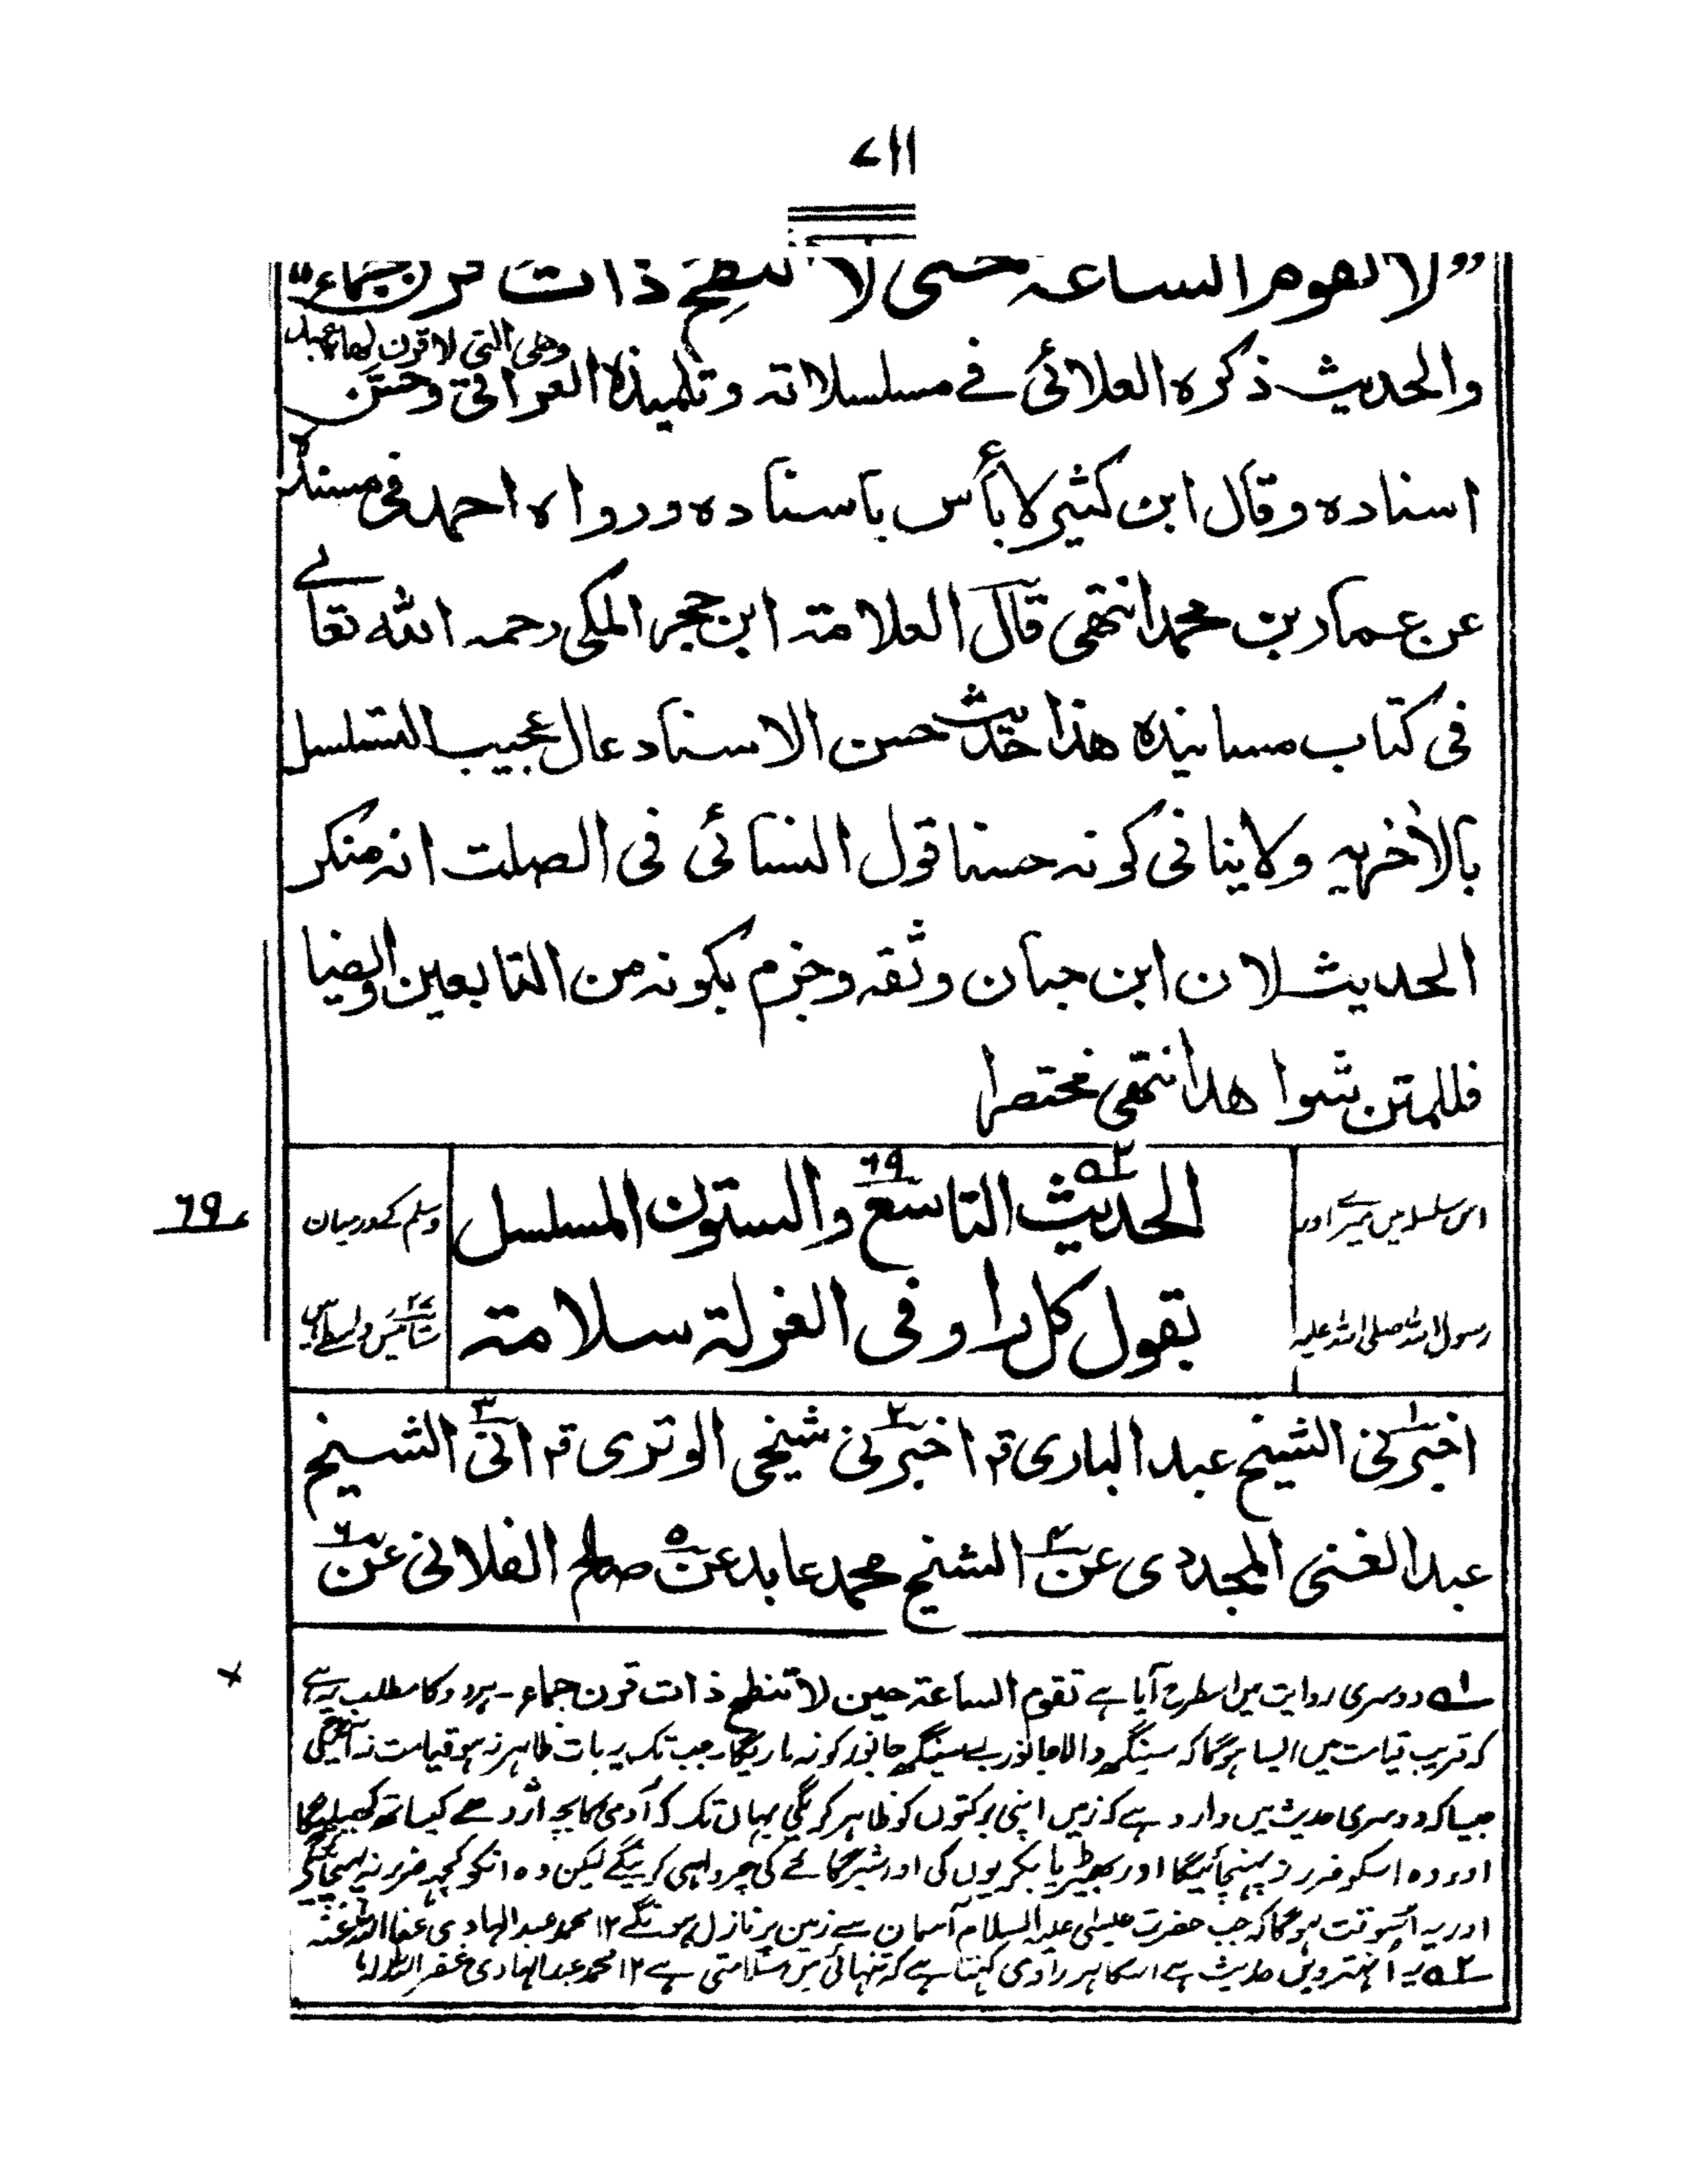 ۷۱۱
”لا تقوم الساعۃ حتی لا تنطح ذات قرن جماء“
وھی التی لا قرن لھا
والحدیث ذکرہ العلائی فے مسلسلاتہ وتلمیذہ العراقی وحسّن
اسنادہ وقال ابن کثیر لا بأس باسنادہ ورواہ احمد فی مسندہ
عن عمار بن محمد انتھی قال العلامۃ ابن حجر المکی رحمہ اللہ تعالے
فی کتاب مسانیدہ ھذا حدیث حسن الاسناد عال عجیب التسلسل
بالأخریہ ولا ینافی کونہ حسنا قول النسائی فی الصلت انہ منکر
الحدیث لان ابن حبان وثقہ وجزم بکونہ من التابعین وایضا
فللمتن شواھد انتھی مختصرا
اس سلسلہ میں میرے اور
رسول اللہ صلی اللہ علیہ
الحدیث۲ التاسع والستون۶۹ المسلسل
بقول کل راو فی العزلۃ سلامۃ
وسلم کے درمیان
ستائیس واسطے ہیں
۶۹
اخبرنی۱ الشیخ عبد الباری قم اخبرنی۲ شیخی الوتری قم انی۳ الشیخ
عبد الغنی المجددی عن۴ الشیخ محمد عابد عن۵ صالح الفلانی عن۶
۱ دوسری روایت میں اسطرح آیا ہے تقوم الساعۃ حین لا تنطح ذات قرن جماء۔ ہر دو کا مطلب یہ ہے
کہ قریب قیامت میں ایسا ہوگا کہ سینگھ والا جانور بے سینگھ جانور کو نہ ماریگا، جب تک یہ بات ظاہر نہ ہو قیامت نہ آئیگی
جیسا کہ دوسری حدیث میں وارد ہے کہ زمیں اپنی برکتوں کو ظاہر کریگی یہاں تک کہ آدمی کا بچہ اژدھے کیساتھ کھیلیگا
اور وہ اسکو ضرر نہ پہنچائیگا اور بھیڑیا بکریوں کی اور شیر گائے کی چرواہی کرینگے لیکن وہ انکو کچھ ضرر نہ پہنچائینگے
اور یہ اسوقت ہوگا کہ جب حضرت عیسٰی علیہ السلام آسمان سے زمین پر نازل ہونگے ۱۲ محمد عبد الہادی عفا اللہ عنہ
۲ یہ اُنہترویں حدیث ہے اسکا ہر راوی کہتا ہے کہ تنہائی میں سلامتی ہے ۱۲ محمد عبد الہادی غفر اللہ لہ